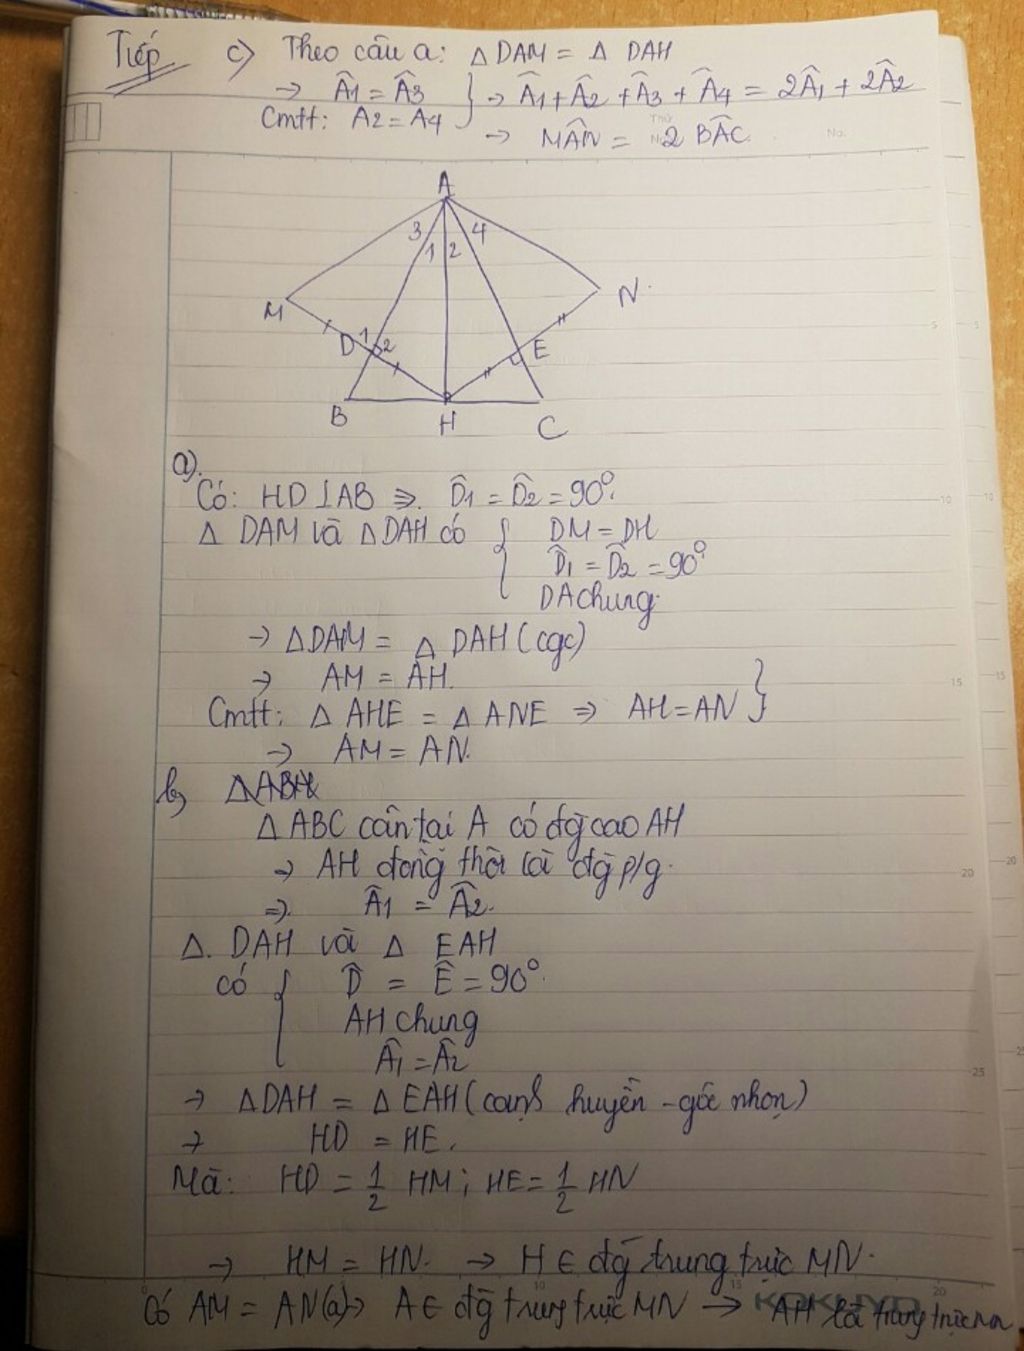 Tiếp c) Theo câu a: Δ DAM = Δ DAH
→ Â1 = Â3 } → Â1 + Â2 + Â3 + Â4 = 2Â1 + 2Â2
Cmtt: A2 = A4
→ MÂN = 2 BÂC.
No.
A
3 1 2 4
M N
D 1 2 E
B H C
a).
Có: HD ⊥ AB ⇒ D̂1 = D̂2 = 90°.
Δ DAM và Δ DAH có { DM = DH
D̂1 = D̂2 = 90°
DA chung
→ Δ DAM = Δ DAH (cgc)
→ AM = AH.
Cmtt: Δ AHE = Δ ANE ⇒ AH = AN }
→ AM = AN.
b)
Δ ABC cân tại A có đg cao AH
→ AH đồng thời là đg p/g.
⇒ Â1 = Â2.
Δ. DAH và Δ EAH
có { D̂ = Ê = 90°
AH chung
Â1 = Â2
→ Δ DAH = Δ EAH (cạnh huyền - góc nhọn)
→ HD = HE.
Mà: HD = 1/2 HM ; HE = 1/2 HN
→ HM = HN. → H ∈ đg trung trực MN.
Có AM = AN (a) → A ∈ đg trung trực MN → AH là trung trực
KOKUYO